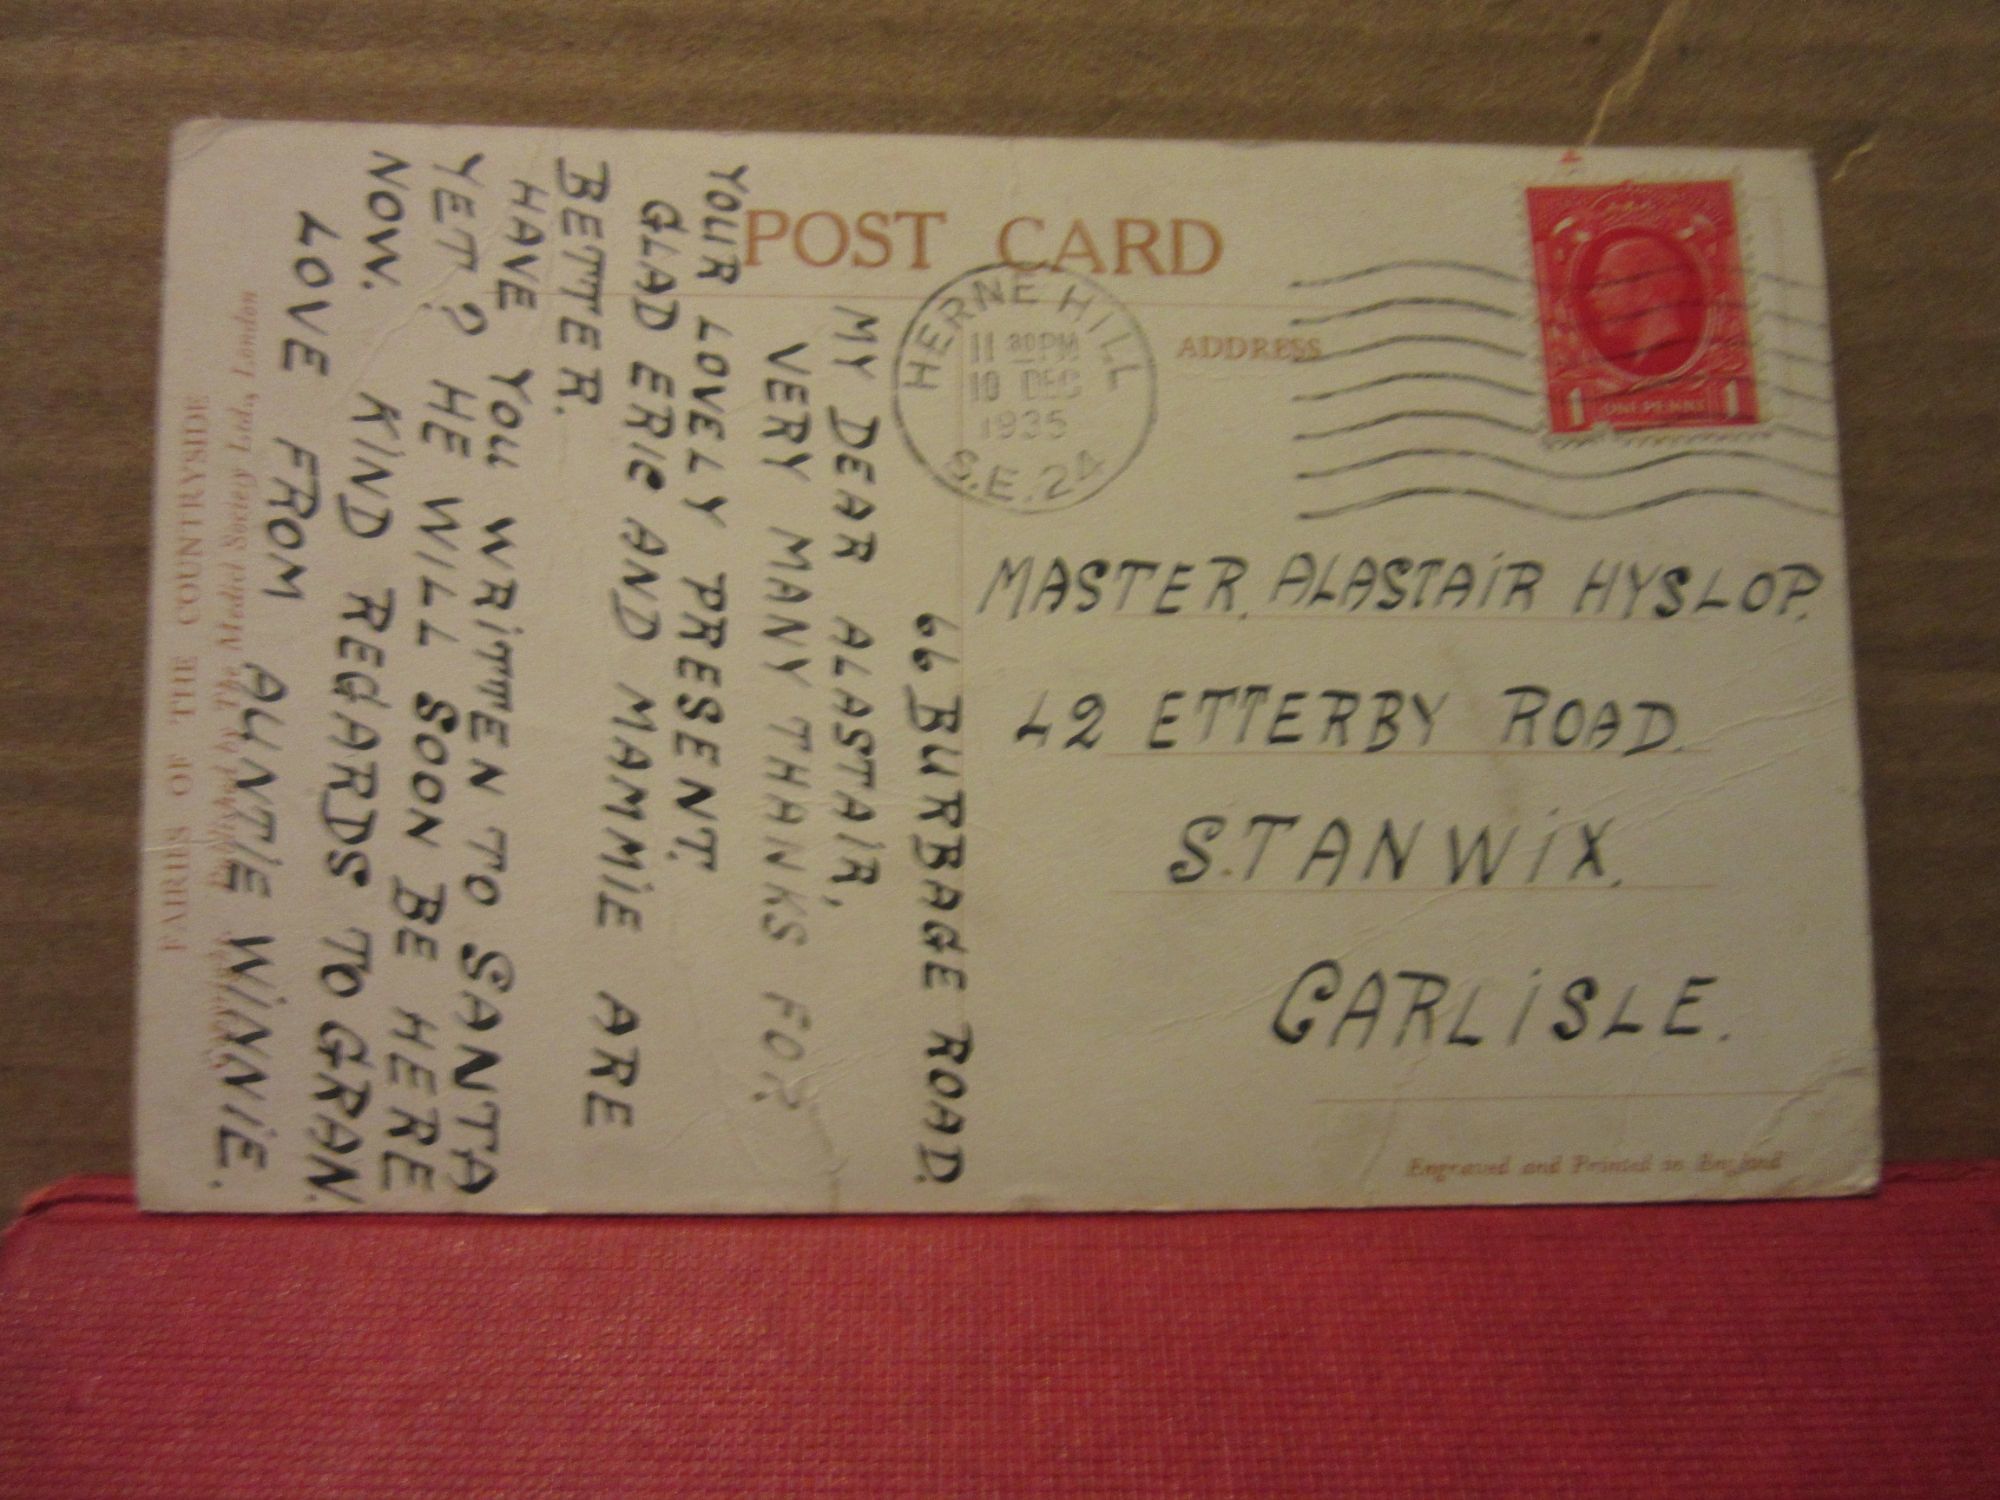 POST CARD
ADDRESS
HERNE HILL
11 30PM
10 DEC
1935
S.E.24
1 ONE PENNY 1
MASTER. ALASTAIR HYSLOP.
42 ETTERBY ROAD.
STANWIX.
CARLISLE.
Engraved and Printed in England
66 BURBAGE ROAD.
MY DEAR ALASTAIR,
VERY MANY THANKS FOR
YOUR LOVELY PRESENT.
GLAD ERIC AND MAMMIE ARE
BETTER.
HAVE YOU WRITTEN TO SANTA
YET? HE WILL SOON BE HERE
NOW. KIND REGARDS TO GRAN.
LOVE FROM
AUNTIE WINNIE.
Published by The Medici Society Ltd., London
FARIES OF THE COUNTRYSIDE